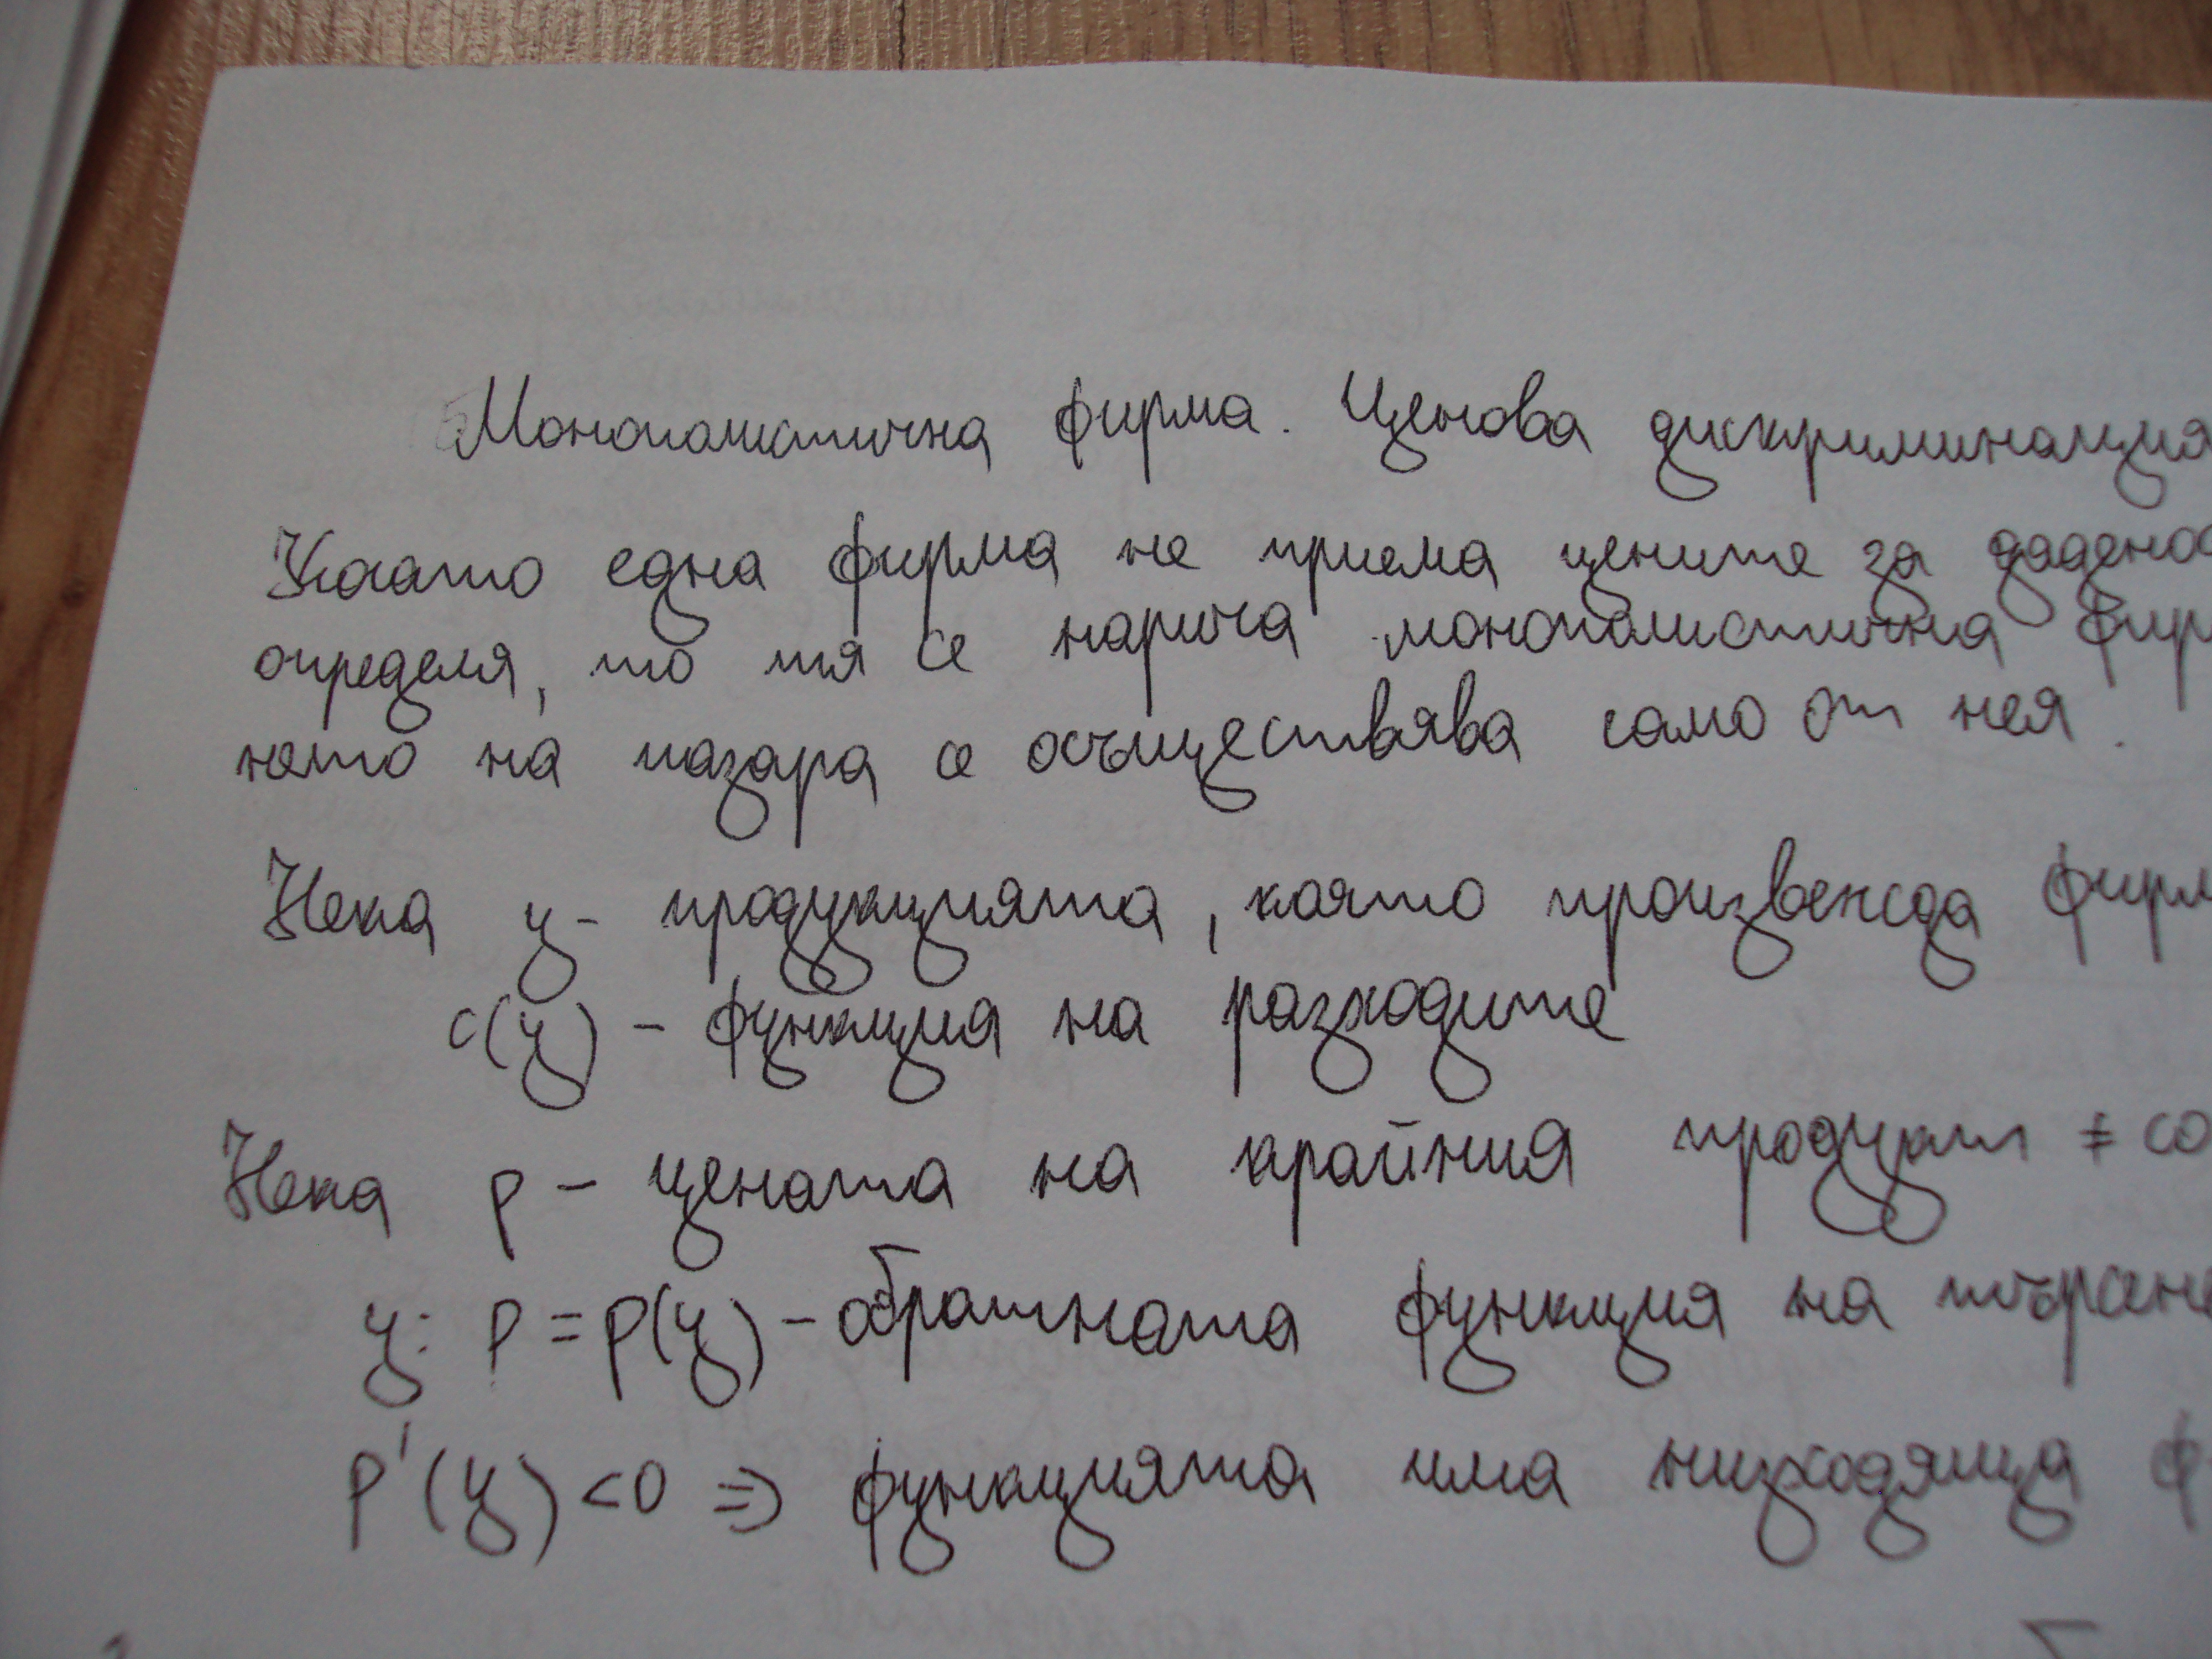 Монополистична фирма. Ценова дискриминация
Когато една фирма не приема цените за даденос
определя, то тя се нарича монополистична фир
нето на пазара се осъществява само от нея.
Нека y - продукцията, която произвежда фирм
c(y) - функция на разходите
Нека p - цената на крайния продукт ≠ co
y: p = p(y) - обратната функция на търсене
p'(y) < 0 => функцията има низходяща ф